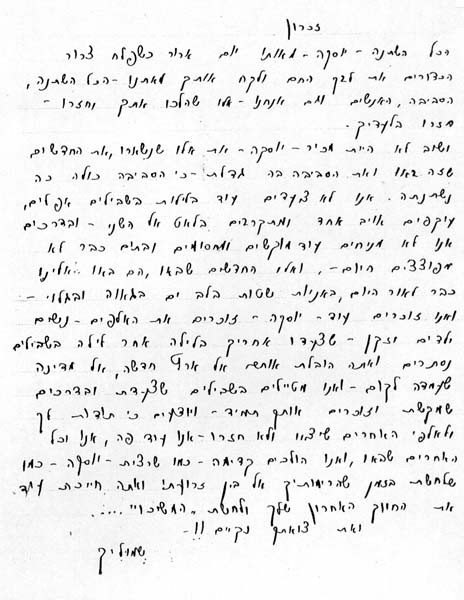 זכרון
הכל השתנה - יוסקה - מאותו יום ארור כשפלח צרור
הכדורים את לבך החם ולקח אותך מאתנו - הכל השתנה,
הסביבה, האנשים וגם אנחנו - אלו שהלכו אתך וחזרו -
חזרו בלעדיך.
ושוב לא היית מכיר - יוסקה - את אלו שנשארו, את החדשים
שזה באו ואת הסביבה בה גדלת - כי הסביבה כולה כה
נשתנתה. אנו לא צועדים עוד בלילות בשבילים אפלים,
עוקפים אויב אחד ומתקרבים בלאט אל השני - ובדרכים
אנו לא מניחים עוד מוקשים ומחסומים ובתים כבר לא
מפוצצים היום -, ואלו החדשים שבאו, הם באו אלינו
כבר לאור היום, באניות ששטות בלב ים בגאווה ובגלוי -
ואנו זוכרים עוד - יוסקה - זוכרים את האלפים - נשים
ילדים וזקן - שצעדו אחריך בלילה אחר לילה בשבילים
נסתרים ואתה הובלת אותם אל ארץ חדשה, אל מדינה
שעמדה לקום - ואנו מטיילים בשבילים שצעדת ובדרכים
שמקשת וזוכרים אותך תמיד - ויודעים כי תודות לך
ולאלפי האחרים שיצאו ולא חזרו - אנו עוד פה, אנו וכל
האחרים שבאו, ואנו הולכים קדימה - כמו שרצית - יוסקה - כמו
שלחשת בזמן שהרימותיך אל בין זרועותי ואתה חייכת עוד
את החיוך האחרון שלך ולחשת "המשיכו" ....
ואת צואתך נקיים !! -
שמוליק